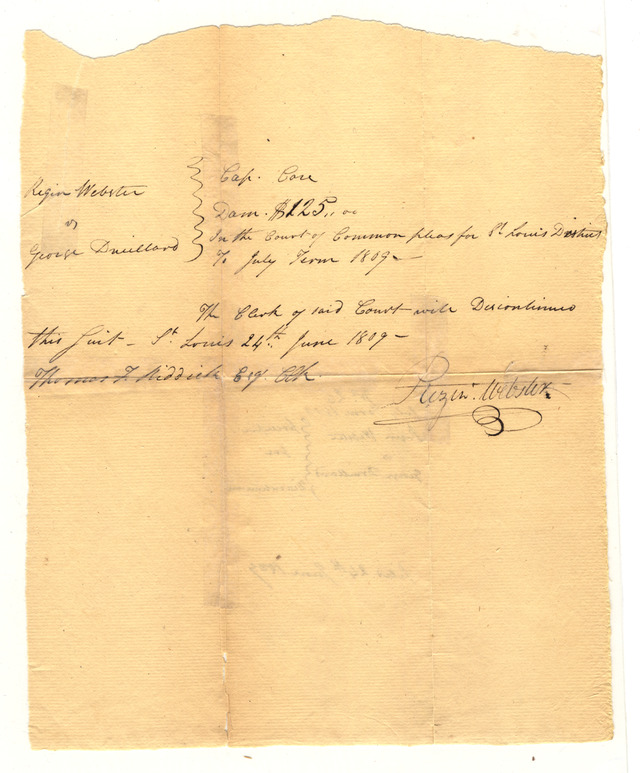 Rezin Webster
vs
George Druillard
Cap. Case
Dam. $125,, 00
In the Court of Common pleas for St Louis District
To July Term 1809 –
The Clerk of said Court will Discontinue
this Suit – St. Louis 24th June 1809 –
Thomas F. Riddick Esq Clk.
Rezin Webster